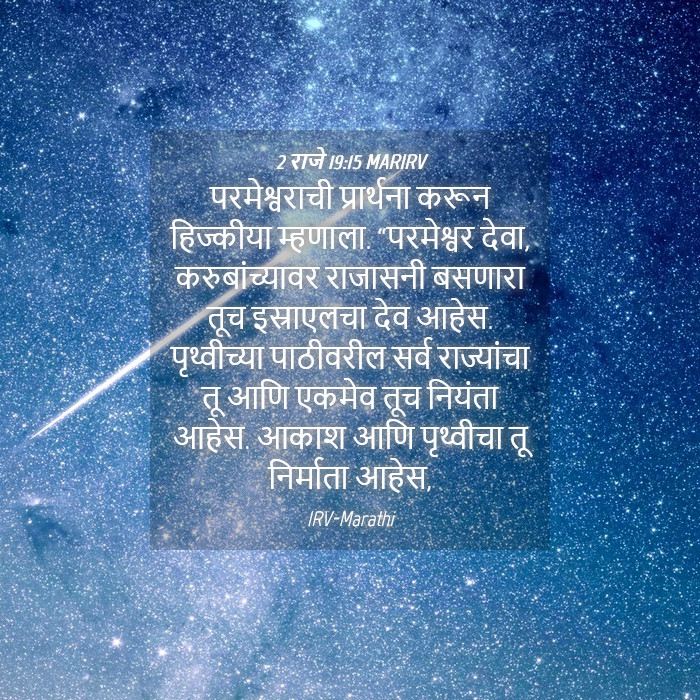 2 राजे 19:15 MARIRV
परमेश्वराची प्रार्थना करून
हिज्कीया म्हणाला. “परमेश्वर देवा,
करुबांच्यावर राजासनी बसणारा
तूच इस्राएलचा देव आहेस.
पृथ्वीच्या पाठीवरील सर्व राज्यांचा
तू आणि एकमेव तूच नियंता
आहेस. आकाश आणि पृथ्वीचा तू
निर्माता आहेस,
IRV-Marathi